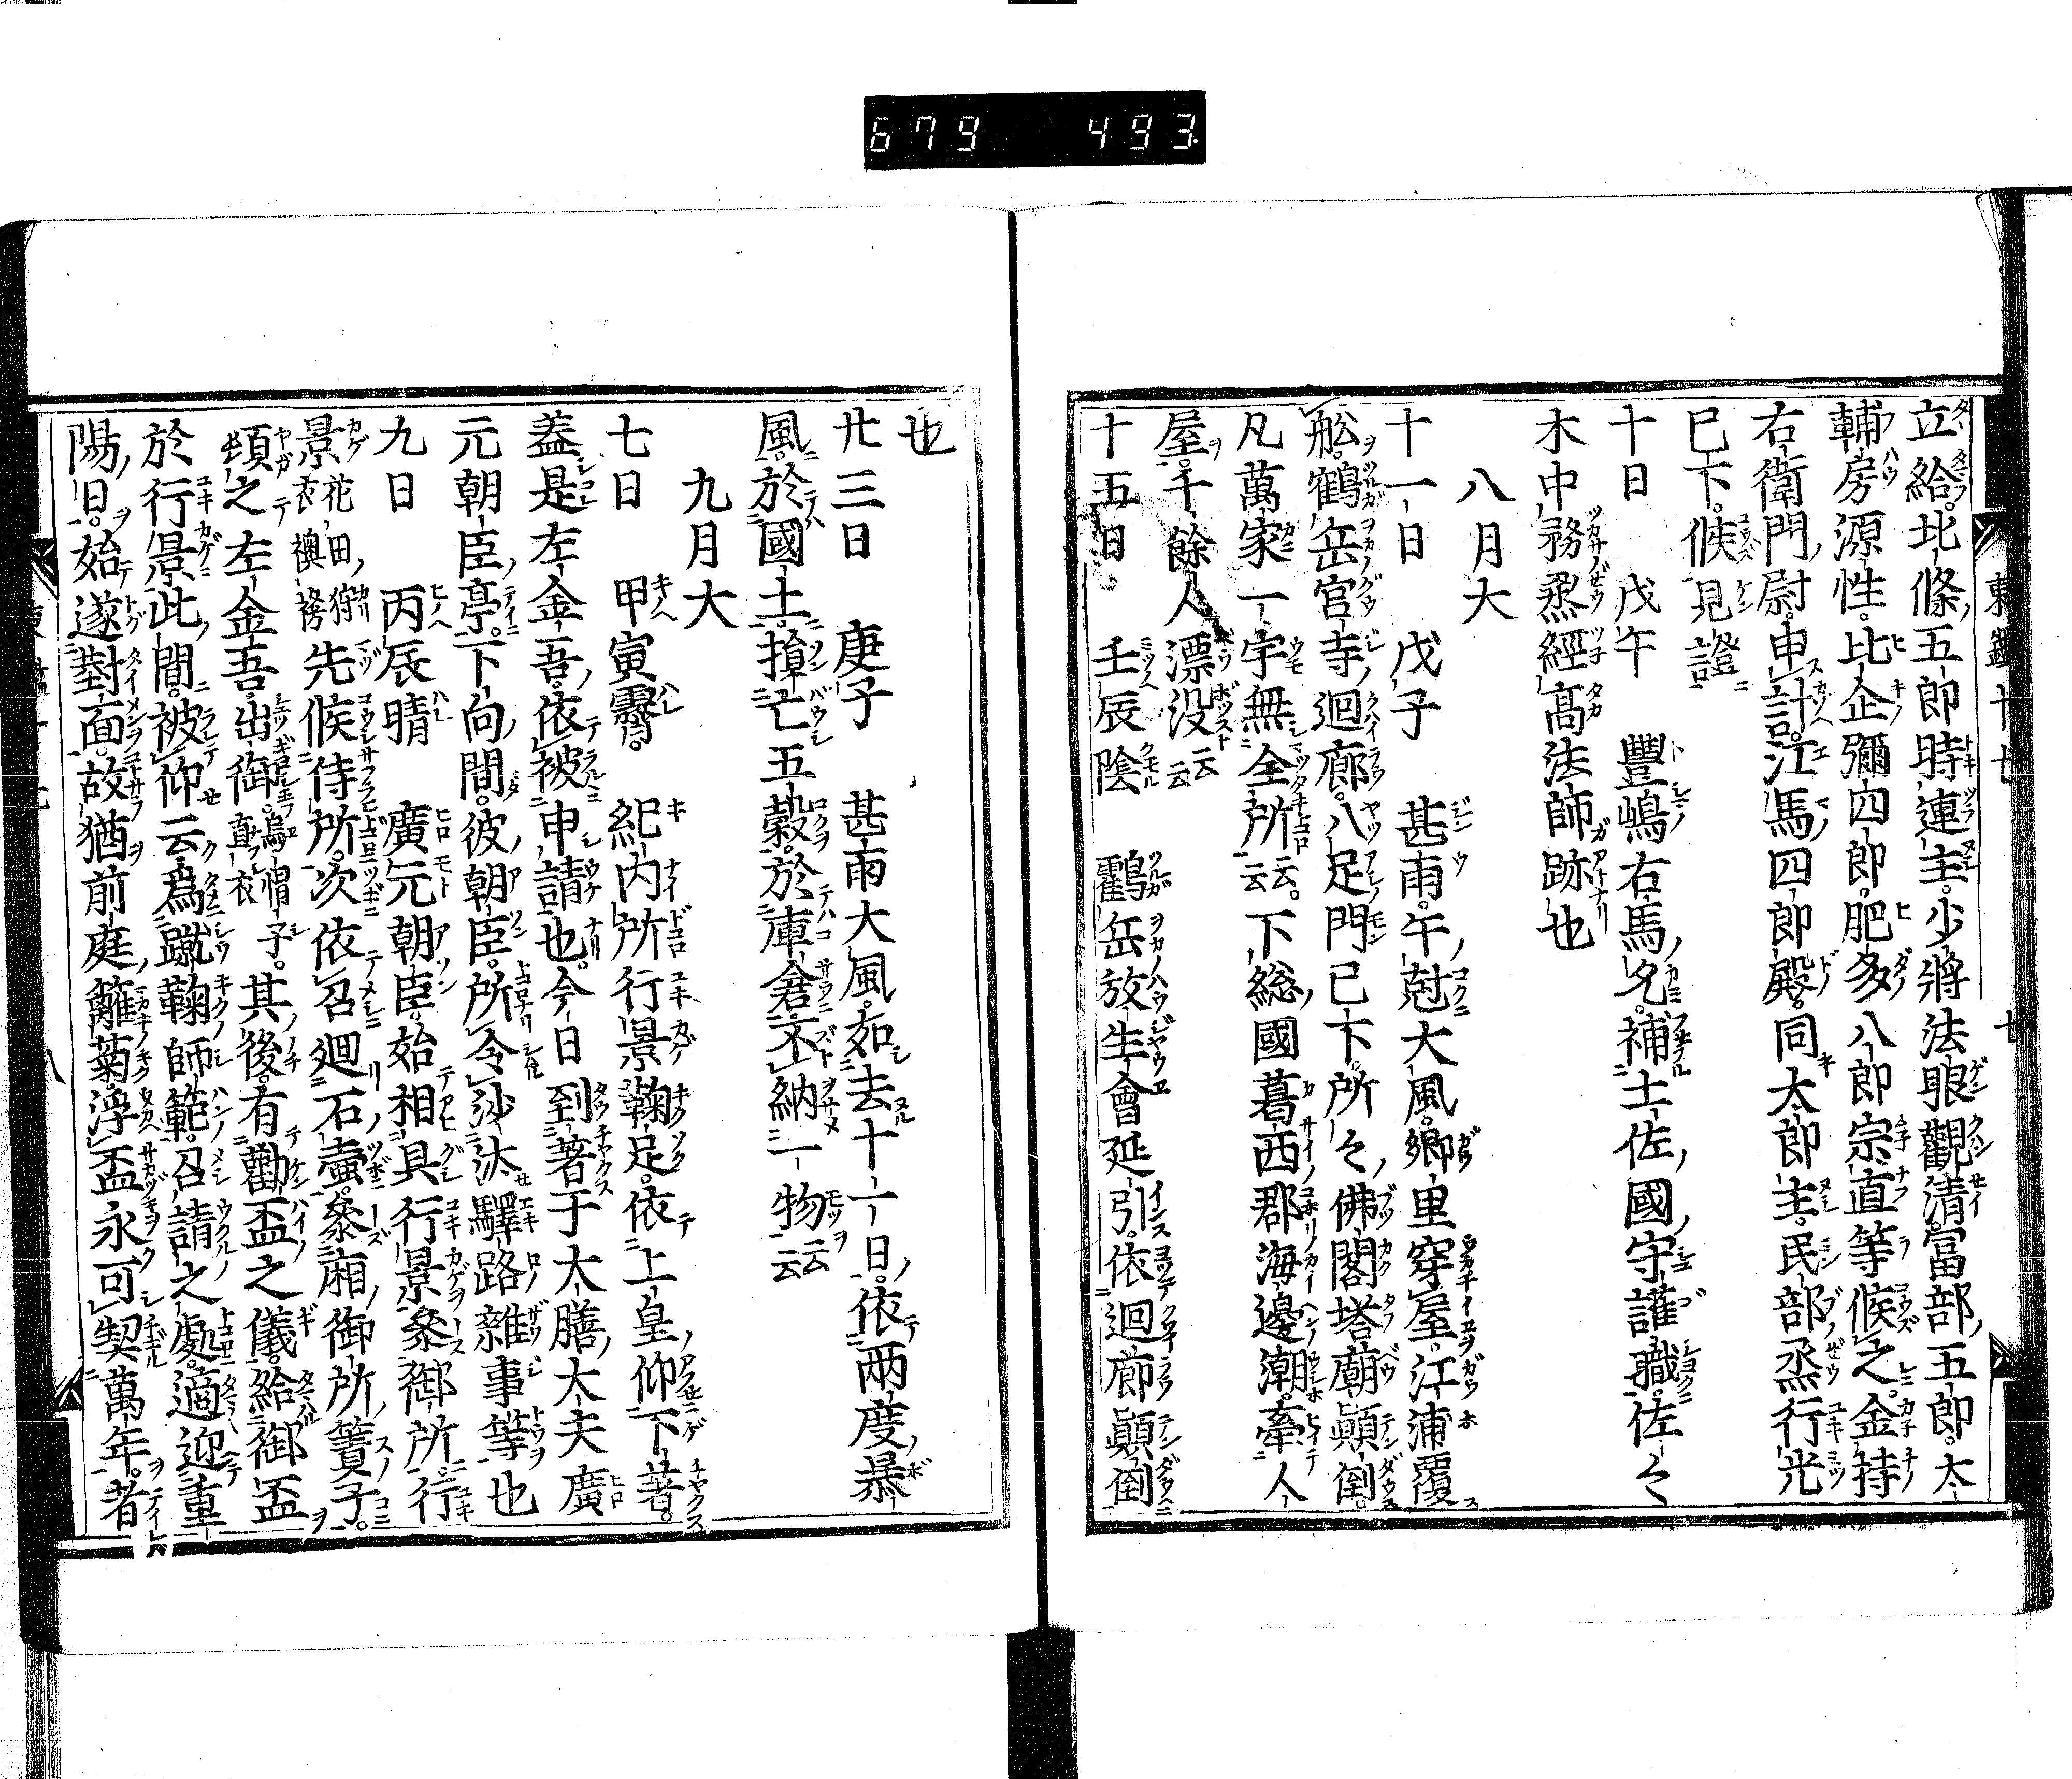 679 493
東鑑十七
七
立給北條五郎時連主少將法眼觀清富部五郎太
輔房源性比企彌四郎肥多八郎宗直等候之金持
右衛門尉申計江馬四郎殿同太郎主民部烝行光
已下候見證
十日 戊午 豐嶋右馬允補土佐國守護職佐々
木中務烝經高法師跡也
八月大
十一日 戊子 甚雨午尅大風鄉里穿屋江浦覆
舩鶴岳宮寺迴廊八足門已下所々佛閣塔廟顚倒
凡萬家一宇無全所云云下総國葛西郡海邊潮牽人
屋千餘人漂没云云
十五日 壬辰陰 鶴岳放生會延引依迴廊顚倒
也
廿三日 庚子 甚雨大風如去十一日依兩度暴
風於國土損亡五穀於庫倉不納一物云云
九月大
七日 甲寅霽 紀内所行景鞠足依上皇仰下著
蓋是左金吾依被申請也今日到著于太膳大夫廣
元朝臣亭下向間彼朝臣所令沙汰驛路雜事等也
九日 丙辰晴 廣元朝臣始相具行景叅御所行
景花田狩衣襖袴先候侍所次依召廻石壷叅廂御所簀子
頃之左金吾出御烏帽子直衣其後有勸盃之儀給御盃
於行景此間被仰云爲蹴鞠師範召請之處適迎重
陽日始遂對面故猶前庭籬菊浮盃永可契萬年者
八